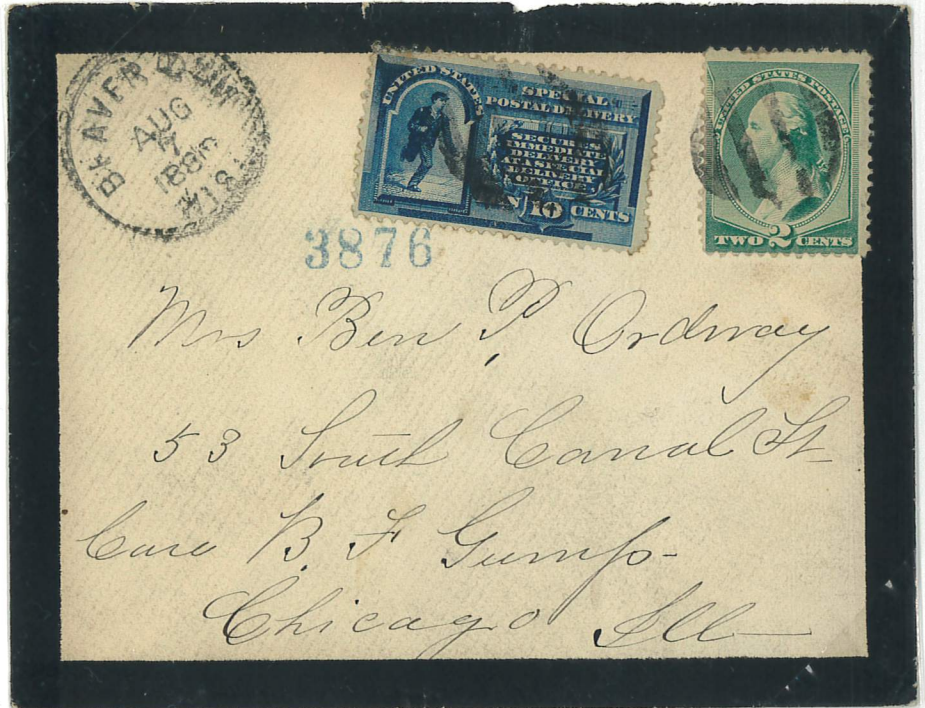 BEAVER DAM
AUG
17
1886
WIS.
UNITED STATES
SPECIAL
POSTAL DELIVERY
SECURES
IMMEDIATE
DELIVERY
AT A SPECIAL
DELIVERY
OFFICE
10 CENTS
UNITED STATES POSTAGE
TWO 2 CENTS
3876
Mrs Ben P. Ordway
53 South Canal St
Care B. F Gump
Chicago Ill